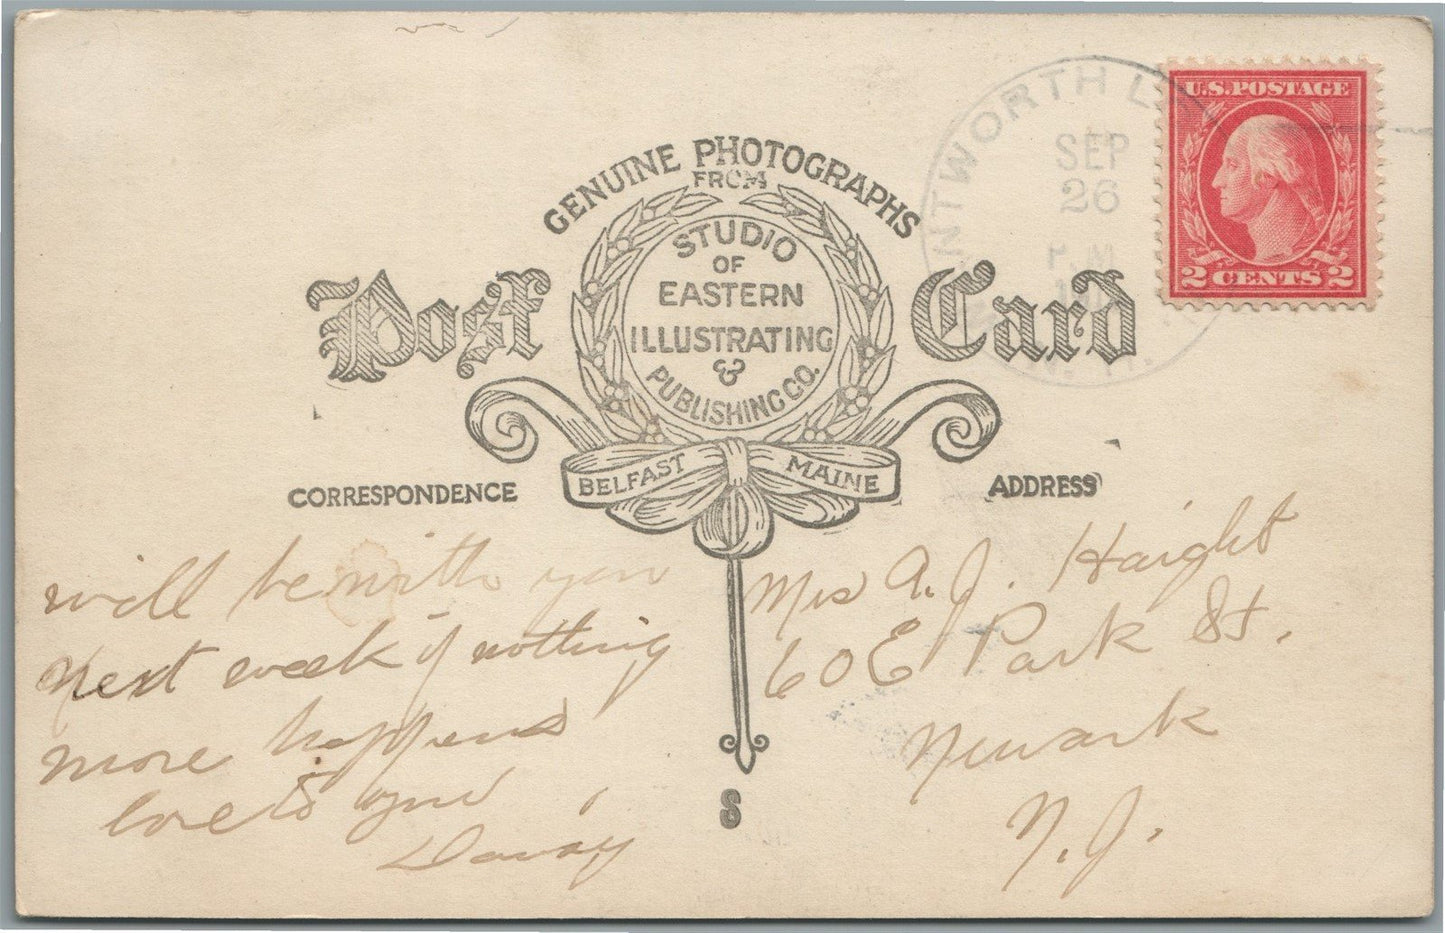 GENUINE PHOTOGRAPHS
FROM
STUDIO
OF
EASTERN
ILLUSTRATING
&
PUBLISHING CO.
BELFAST MAINE
Post Card
NTWORTH L
SEP
26
M
U.S. POSTAGE
2 CENTS 2
CORRESPONDENCE
will be with you
next week if nothing
more happens
love to
ADDRESS
Mrs A. J. Haight
60 E Park St.
Newark
N. J.
S